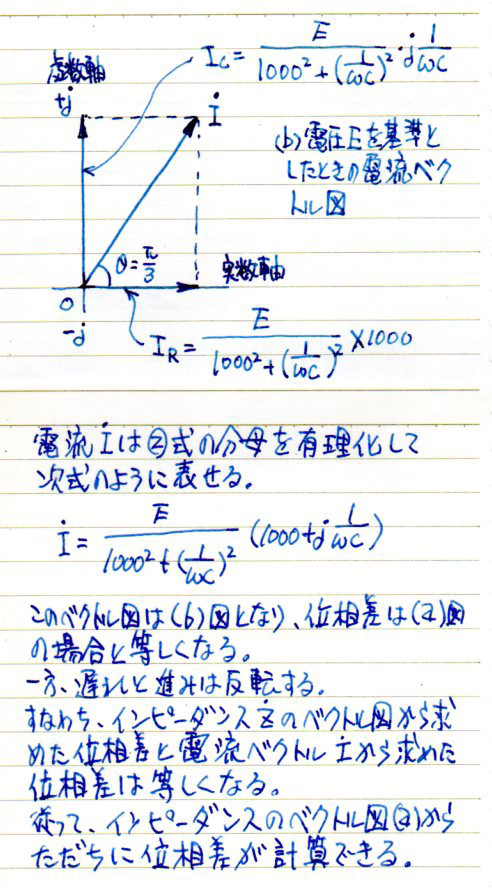 虚数軸
+j
İ_C = E / (1000² + (1/ωC)²) · j 1/ωC
İ
(b) 電圧Eを基準と
したときの電流ベク
トル図
θ=π/3
実数軸
0
-j
I_R = E / (1000² + (1/ωC)²) ×1000
電流 İ は②式の分母を有理化して
次式のように表せる。
İ = E / (1000² + (1/ωC)²) (1000+j 1/ωC)
このベクトル図は(b)図となり、位相差は(a)図
の場合と等しくなる。
一方、遅れと進みは反転する。
すなわち、インピーダンス Ż のベクトル図から求
めた位相差と電流ベクトル İ から求めた
位相差は等しくなる。
従って、インピーダンスのベクトル図(a)から
ただちに位相差が計算できる。